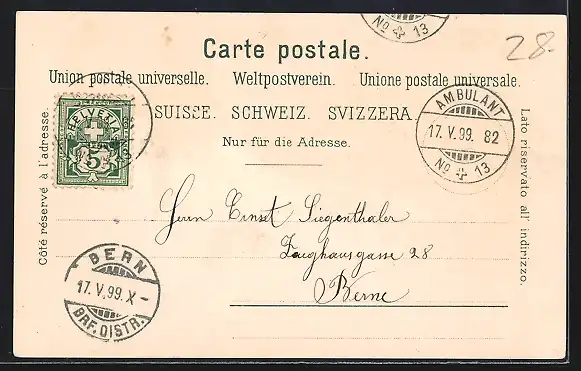 No 13
28-
Carte postale.
Union postale universelle. Weltpostverein. Unione postale universale.
SUISSE. SCHWEIZ. SVIZZERA.
Nur für die Adresse.
Côté réservé à l'adresse.
Lato riservato all' indirizzo.
HELVETIA
5
AMBULANT
17. V. 99. 82
No 13
Herrn Ernst Siegenthaler
Zeughausgasse 28
Berne
BERN
17. V. 99. X-
BRF. DISTR.